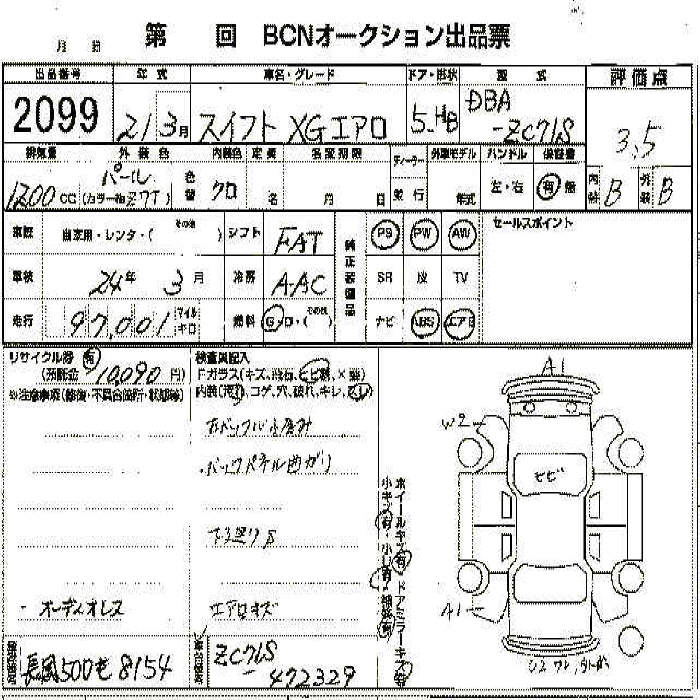 第 回 BCNオークション出品票
月
出品番号 年式 車名・グレード ドア・形状 型式 評価点
2099 21 3月 スイフト XG エアロ 5 HB DBA -ZC71S 3.5
排気量 外装色 色替 内装色 定員 名変期限 ディーラー 外車モデル ハンドル 保証書 内装 B 外装 B
1200cc パール (カラーNo Z7T) クロ 名 月 日 並行 年式 左・右 有 無
車歴 自家用・レンタ・(その他 ) シフト FAT 純正装備品 PS PW AW セールスポイント
車検 24年 3月 冷房 AAC SR 皮 TV
走行 97,001 マイル キロ 燃料 G・D・(その他) ナビ ABS エアB
リサイクル券 有 検査員記入 A1
(預託金 10,090円) Fガラス(キズ、飛石、ヒビ割、×要)
※注意事項(修復・不具合箇所・状態等) 内装(汚れ、コゲ、穴、破れ、キレ、
W2
・バックパネル曲ガリ
ヒビ
下廻りS
ホイールキズ 有 ドアミラーキズ
小キズ 有・小
- オーディオレス エアロキズ A1
登録番号 500 8154 車台番号 ZC71S
-472329